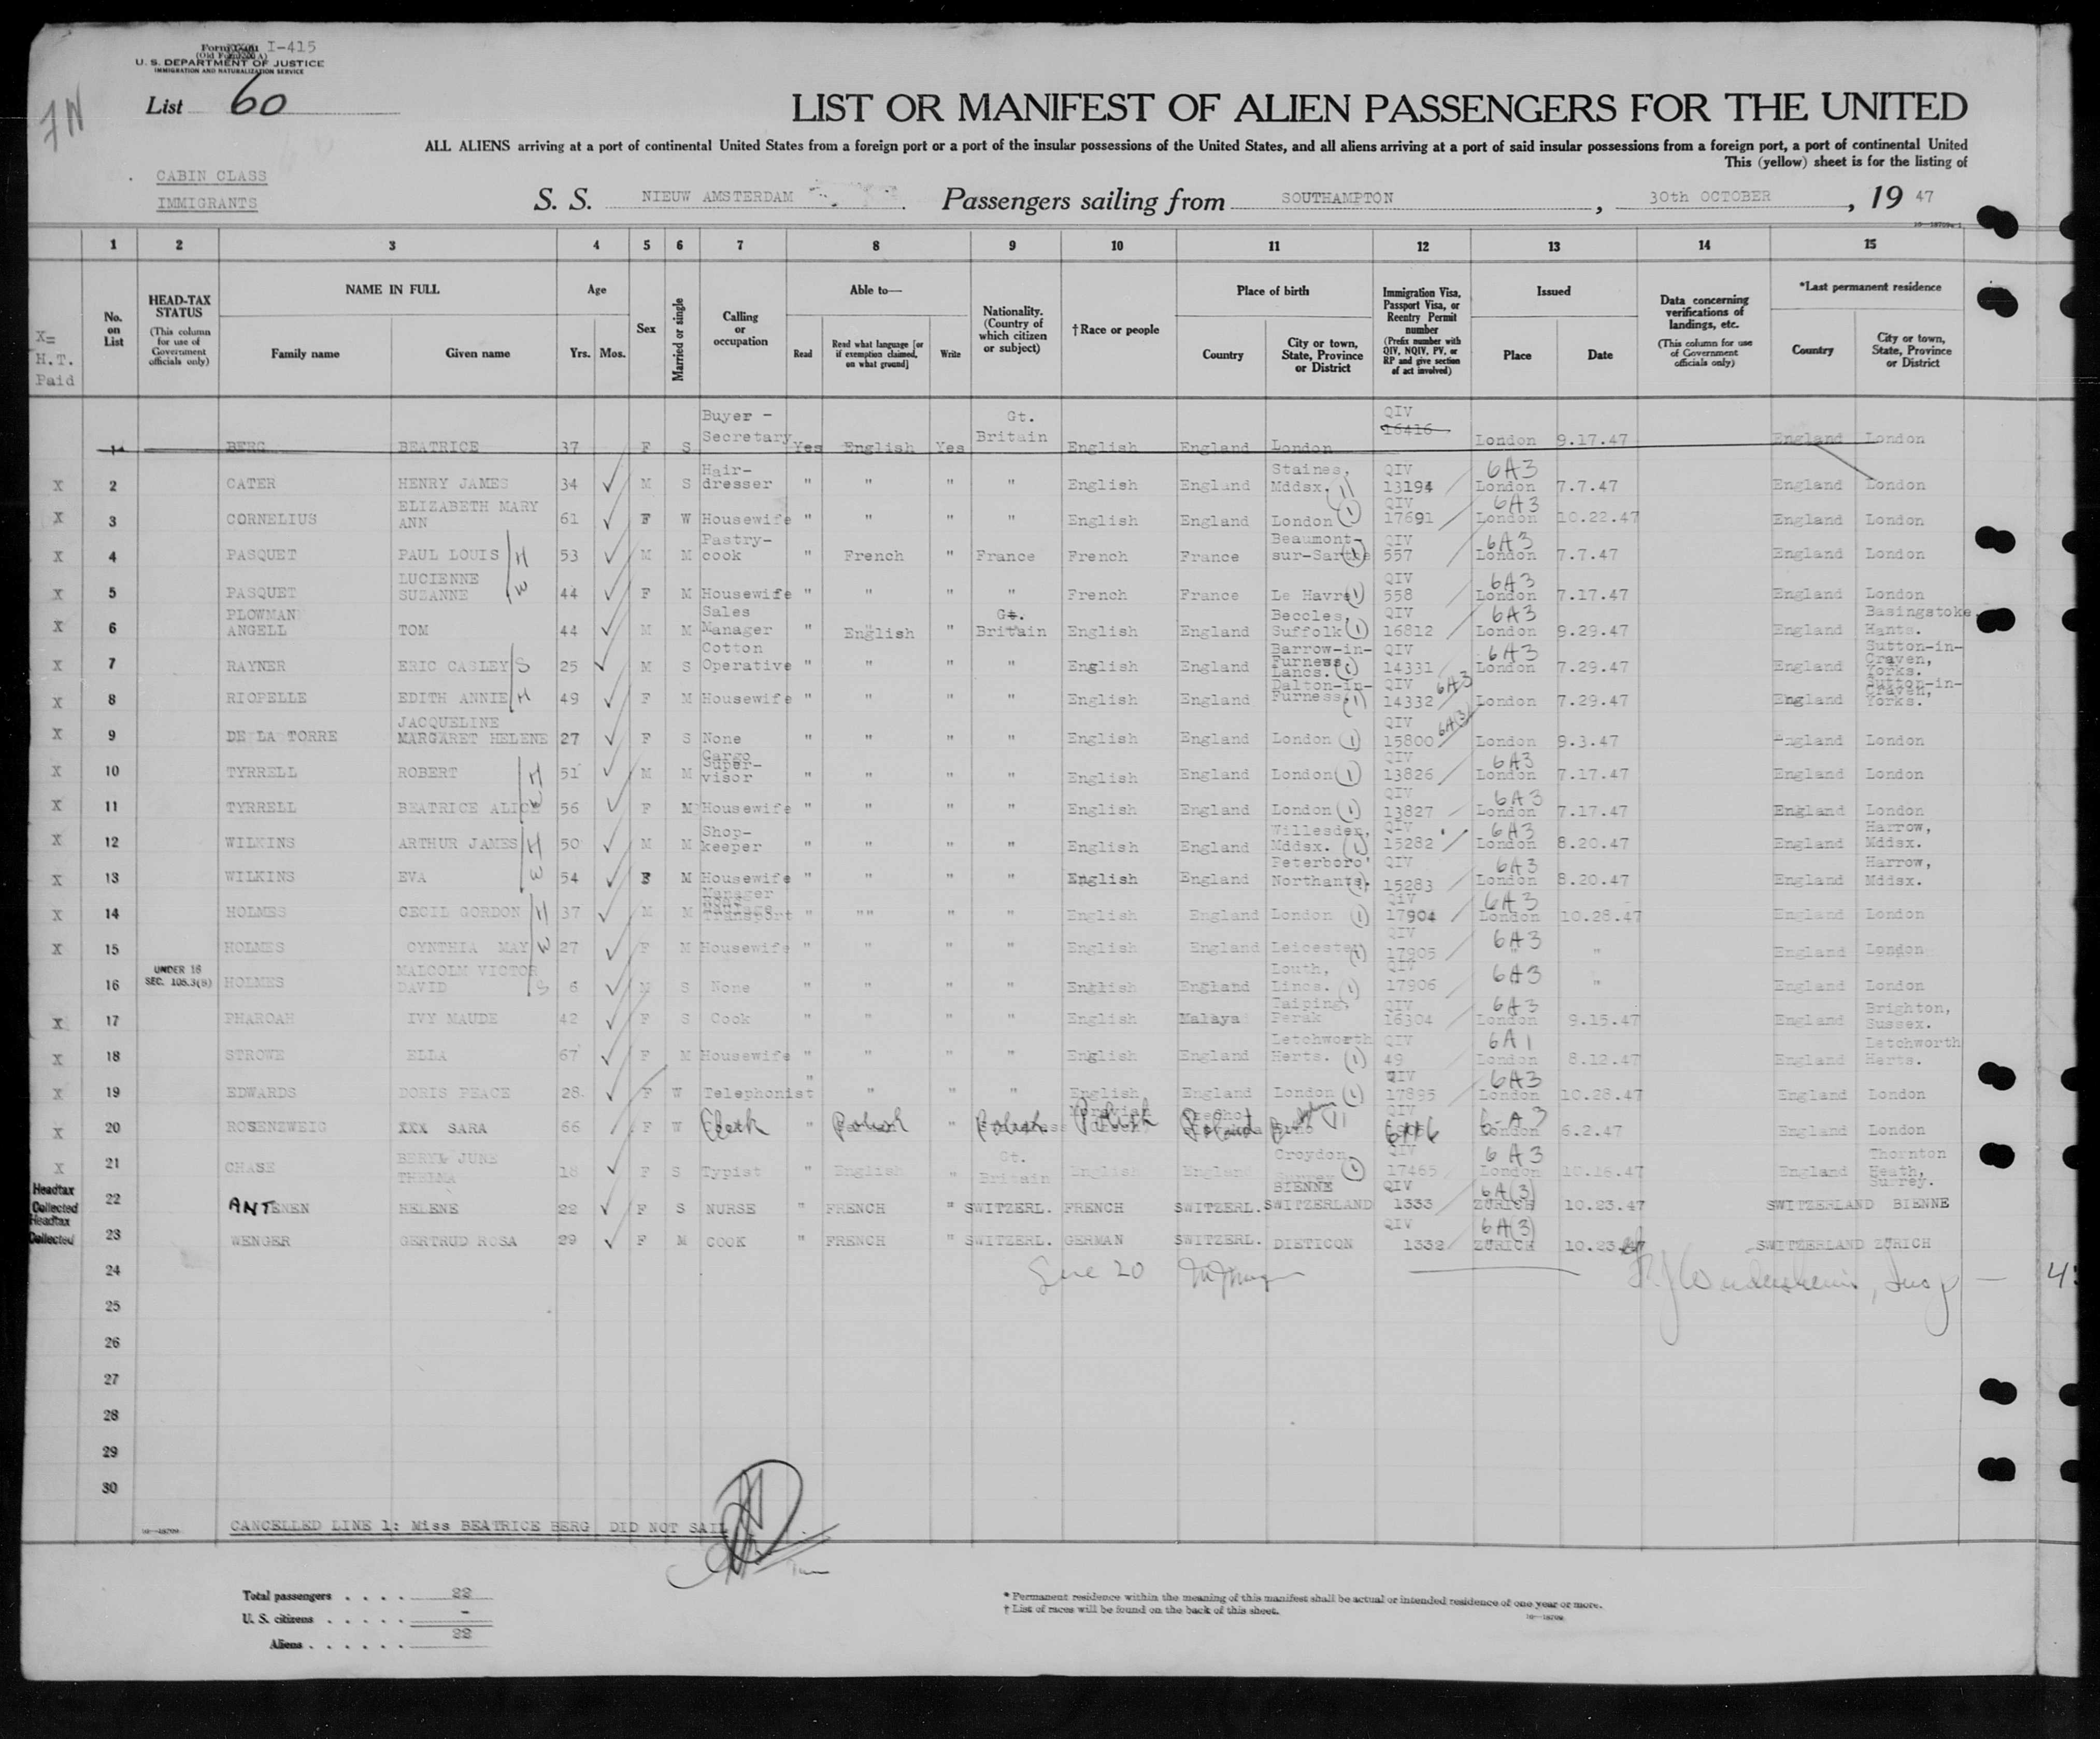 Form I-415
U. S. DEPARTMENT OF JUSTICE
IMMIGRATION AND NATURALIZATION SERVICE
List 60
LIST OR MANIFEST OF ALIEN PASSENGERS FOR THE UNITED
ALL ALIENS arriving at a port of continental United States from a foreign port or a port of the insular possessions of the United States, and all aliens arriving at a port of said insular possessions from a foreign port, a port of continental United
This (yellow) sheet is for the listing of
CABIN CLASS
IMMIGRANTS
S. S. NIEUW AMSTERDAM Passengers sailing from SOUTHAMPTON, 30th OCTOBER, 19 47
1 2 3 4 5 6 7 8 9 10 11 12 13 14 15
X= H.T. Paid
No. on List
HEAD-TAX STATUS (This column for use of Government officials only)
NAME IN FULL Family name Given name
Age Yrs. Mos.
Sex
Married or single
Calling or occupation
Able to— Read Read what language [or if exemption claimed, on what ground] Write
Nationality. (Country of which citizen or subject)
†Race or people
Place of birth Country City or town, State, Province or District
Immigration Visa, Passport Visa, or Reentry Permit number (Prefix number with QIV, NQIV, PV, or RP and give section of act involved)
Issued Place Date
Data concerning verifications of landings, etc. (This column for use of Government officials only)
*Last permanent residence Country City or town, State, Province or District
1 BERG BEATRICE 37 F S Buyer - Secretary Yes English Yes Gt. Britain English England London QIV 16416 London 9.17.47 England London
X 2 CATER HENRY JAMES 34 M S Hair-dresser " " " " English England Staines, Mddsx. QIV 13194 6A3 London 7.7.47 England London
X 3 CORNELIUS ELIZABETH MARY ANN 61 F W Housewife " " " " English England London QIV 17691 6A3 London 10.22.47 England London
X 4 PASQUET PAUL LOUIS H 53 M M Pastry-cook " French " France French France Beaumont-sur-Sarthe QIV 557 6A3 London 7.7.47 England London
X 5 PASQUET LUCIENNE SUZANNE W 44 F M Housewife " " " " French France Le Havre QIV 558 6A3 London 7.17.47 England London
X 6 PLOWMAN ANGELL TOM 44 M M Sales Manager " English " Gt. Britain English England Beccles, Suffolk QIV 16812 6A3 London 9.29.47 England Basingstoke, Hants.
X 7 RAYNER ERIC CASLEY 25 M S Cotton Operative " " " " English England Barrow-in-Furness Lancs. QIV 14331 6A3 London 7.29.47 England Sutton-in-Craven, Yorks.
X 8 RIOPELLE EDITH ANNIE 49 F M Housewife " " " " English England Dalton-in-Furness QIV 14332 6A3 London 7.29.47 England Sutton-in-Craven, Yorks.
X 9 DE LA TORRE JACQUELINE MARGARET HELENE 27 F S None " " " " English England London QIV 15800 6A(3) London 9.3.47 England London
X 10 TYRRELL ROBERT H 51 M M Cargo Super-visor " " " " English England London QIV 13826 6A3 London 7.17.47 England London
X 11 TYRRELL BEATRICE ALICE W 56 F M Housewife " " " " English England London QIV 13827 6A3 London 7.17.47 England London
X 12 WILKINS ARTHUR JAMES H 50 M M Shop-keeper " " " " English England Willesden, Mddsx. QIV 15282 6A3 London 8.20.47 England Harrow, Mddsx.
X 13 WILKINS EVA W 54 F M Housewife " " " " English England Peterboro' Northants. QIV 15283 6A3 London 8.20.47 England Harrow, Mddsx.
X 14 HOLMES CECIL GORDON H 37 M M Manager Transport " "" " " English England London QIV 17904 6A3 London 10.28.47 England London
X 15 HOLMES CYNTHIA MAY W 27 F M Housewife " " " " English England Leicester QIV 17905 6A3 " " England London
UNDER 16 SEC. 105.3(8) 16 HOLMES MALCOLM VICTOR DAVID S 6 M S None " " " " English England Louth, Lincs. QIV 17906 6A3 " England London
X 17 PHAROAH IVY MAUDE 42 F S Cook " " " " English Malaya Taiping, Perak QIV 16304 6A3 London 9.15.47 England Brighton, Sussex.
X 18 STROWE ELLA 67 F M Housewife " " " " English England Letchworth Herts. QIV 49 6A1 London 8.12.47 England Letchworth Herts.
X 19 EDWARDS DORIS PEACE 28 F W Telephonist " " " " English England London QIV 17895 6A3 London 10.28.47 England London
X 20 ROSENZWEIG XXX SARA 66 F W Clerk " Polish " Polish Polish Poland QIV 6-A3 London 6.2.47 England London
X 21 CHASE BERYL JUNE THELMA 18 F S Typist " English " Gt. Britain English England Croydon, Surrey QIV 17465 6A3 London 10.16.47 England Thornton Heath, Surrey.
Headtax Collected 22 ANTENEN HELENE 22 F S NURSE " FRENCH " SWITZERL. FRENCH SWITZERL. BIENNE SWITZERLAND QIV 1333 6A(3) ZURICH 10.23.47 SWITZERLAND BIENNE
Headtax Collected 23 WENGER GERTRUD ROSA 29 F M COOK " FRENCH " SWITZERL. GERMAN SWITZERL. DIETICON QIV 1332 6A(3) ZURICH 10.23.47 SWITZERLAND ZURICH
24
25
26
27
28
29
30
CANCELLED LINE 1: Miss BEATRICE BERG DID NOT SAIL
Total passengers . . . . 22
U. S. citizens . . . . . -
Aliens . . . . . . 22
* Permanent residence within the meaning of this manifest shall be actual or intended residence of one year or more.
† List of races will be found on the back of this sheet.